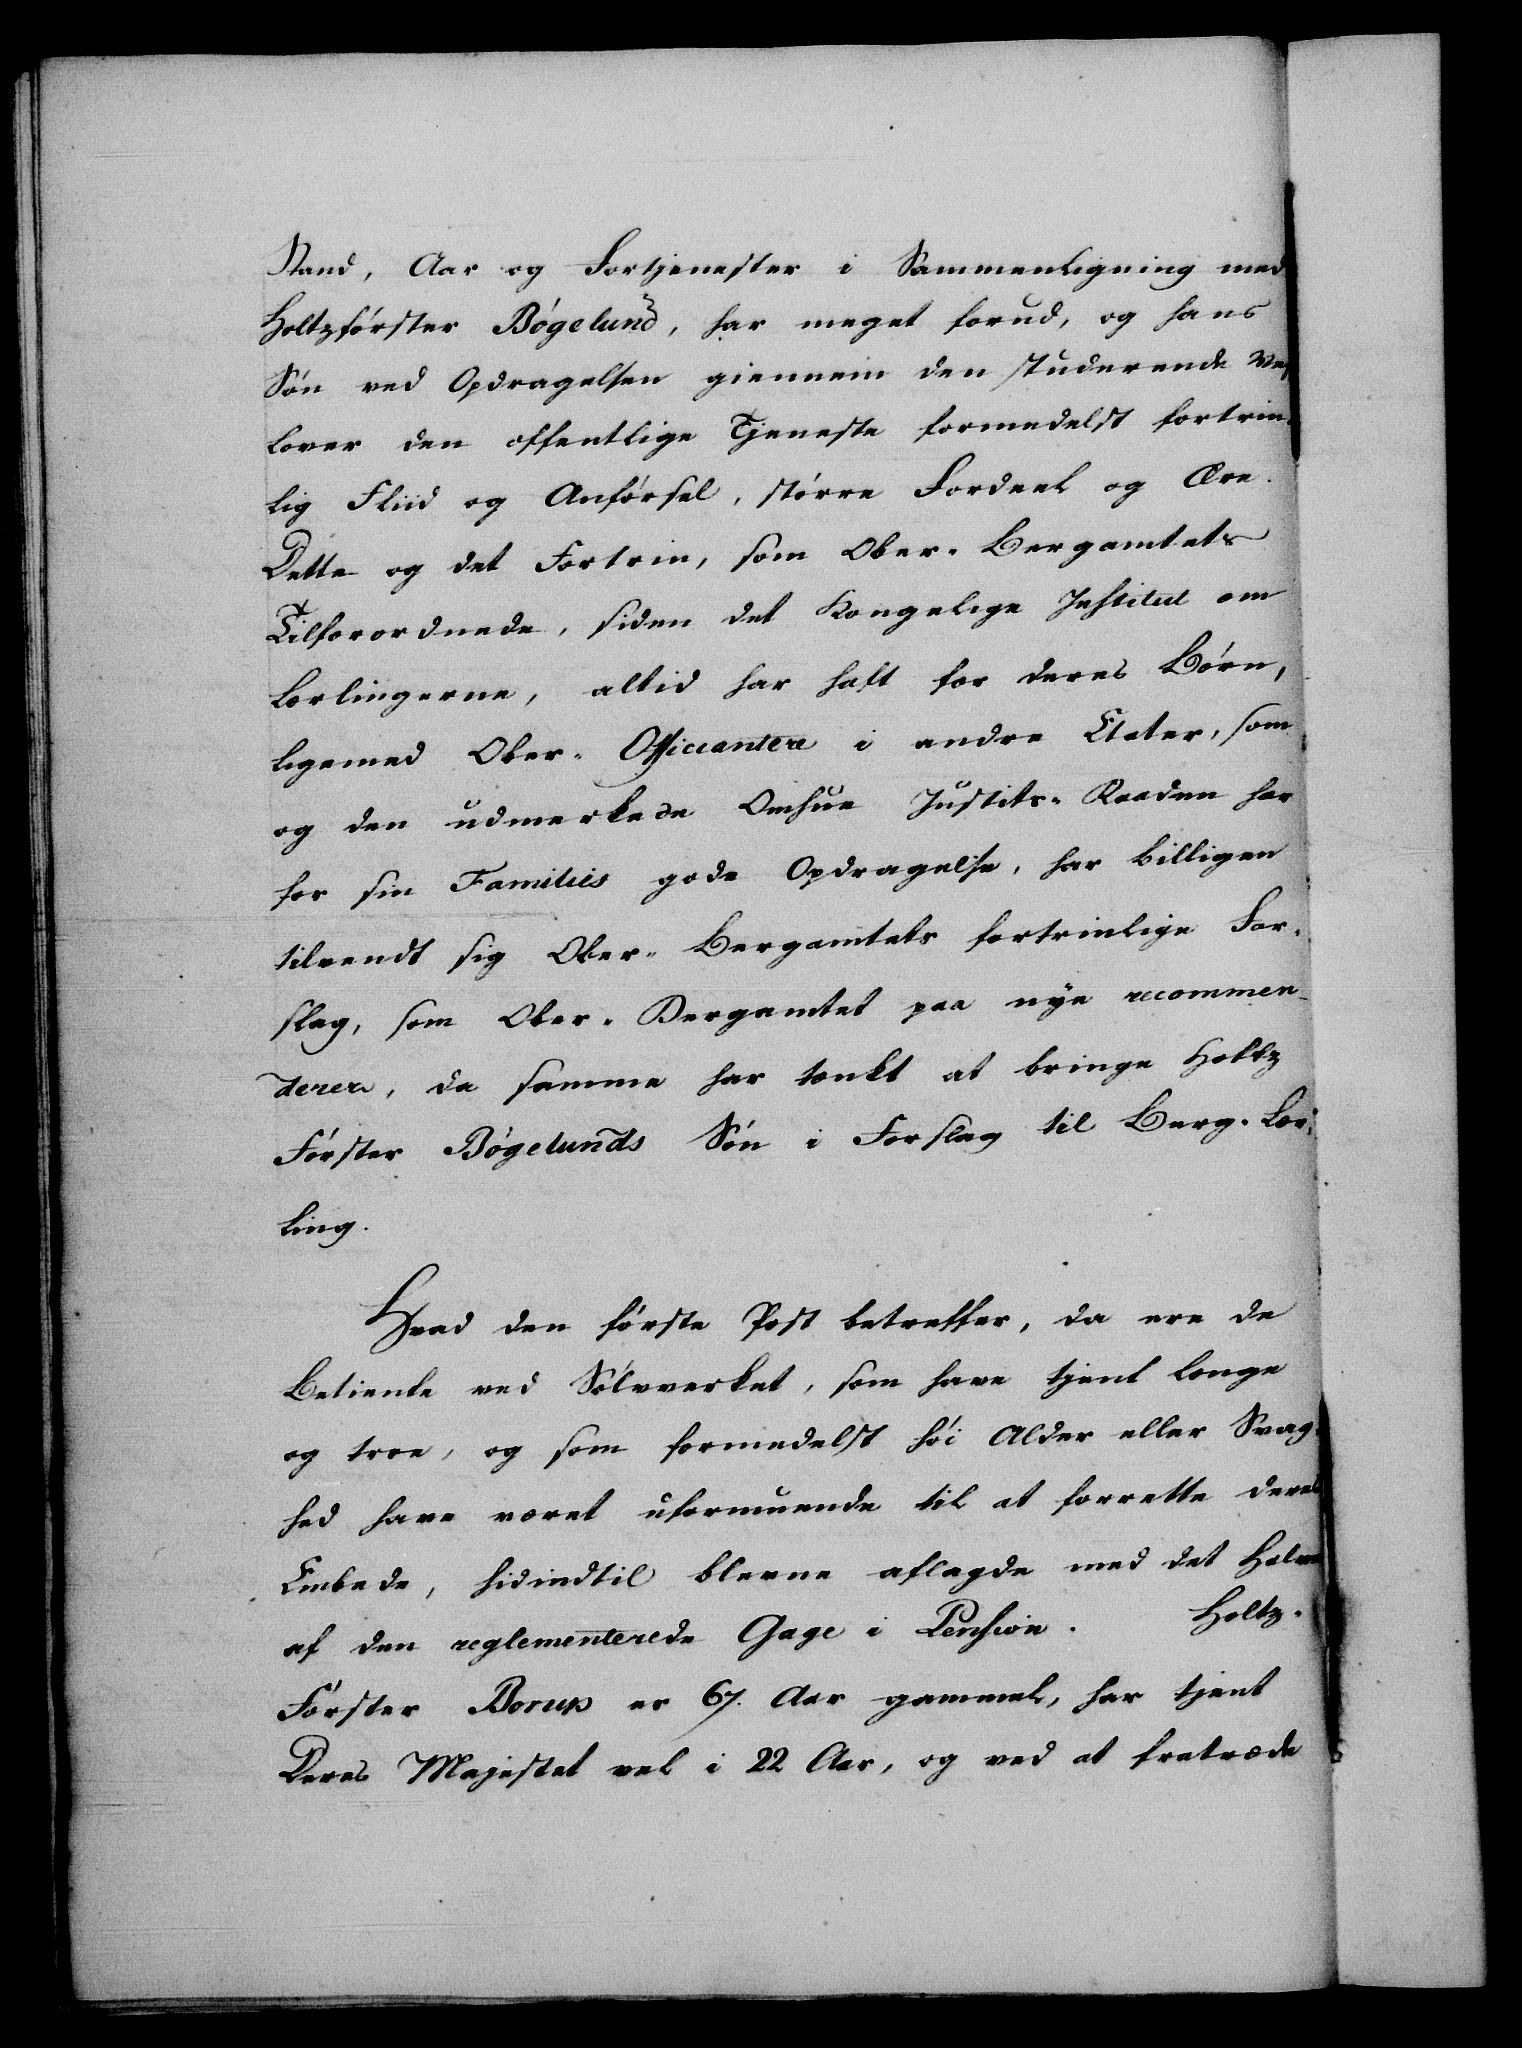 Stand, Aar og Fortjenester i Sammenligning med
Holtzförster Bögelund, har meget forud, og hans
Sön ved Opdragelsen giennem den studerende Vei,
lover den offentlige Tjeneste formedelst fortrin-
lig Fliid og Anförsel, större Fordeel og Ære.
Dette og det Fortrin, som Ober-Bergamtets
Tilforordnede, siden det Kongelige Institut om
Lærlingerne, altid har haft for deres Börn,
ligemed Ober-Officiantere i andre Etater, som
og den udmerkede Omhue Justits-Raaden har
for sin Familiis gode Opdragelse, har billigen
tilvendt sig Ober-Bergamtets fortrinlige For-
slag, som Ober-Bergamtet paa nye recommen-
derer, da samme har tænkt at bringe Holtz
Förster Bögelunds Sön i Forslag til Berg-Lær-
ling.
Hvad den förste Post betreffer, da ere de
Betiente ved Sölvverket, som have tjent længe
og troe, og som formedelst höi Alder eller Svag-
hed have været uformuende til at forrette deres
Embede, hidindtil blevne aflagde med det Halve
af den reglementerede Gage i Pension. Holtz-
Förster Borup er 67. Aar gammel, har tjent
Deres Majestet vel i 22 Aar, og ved at fratræde